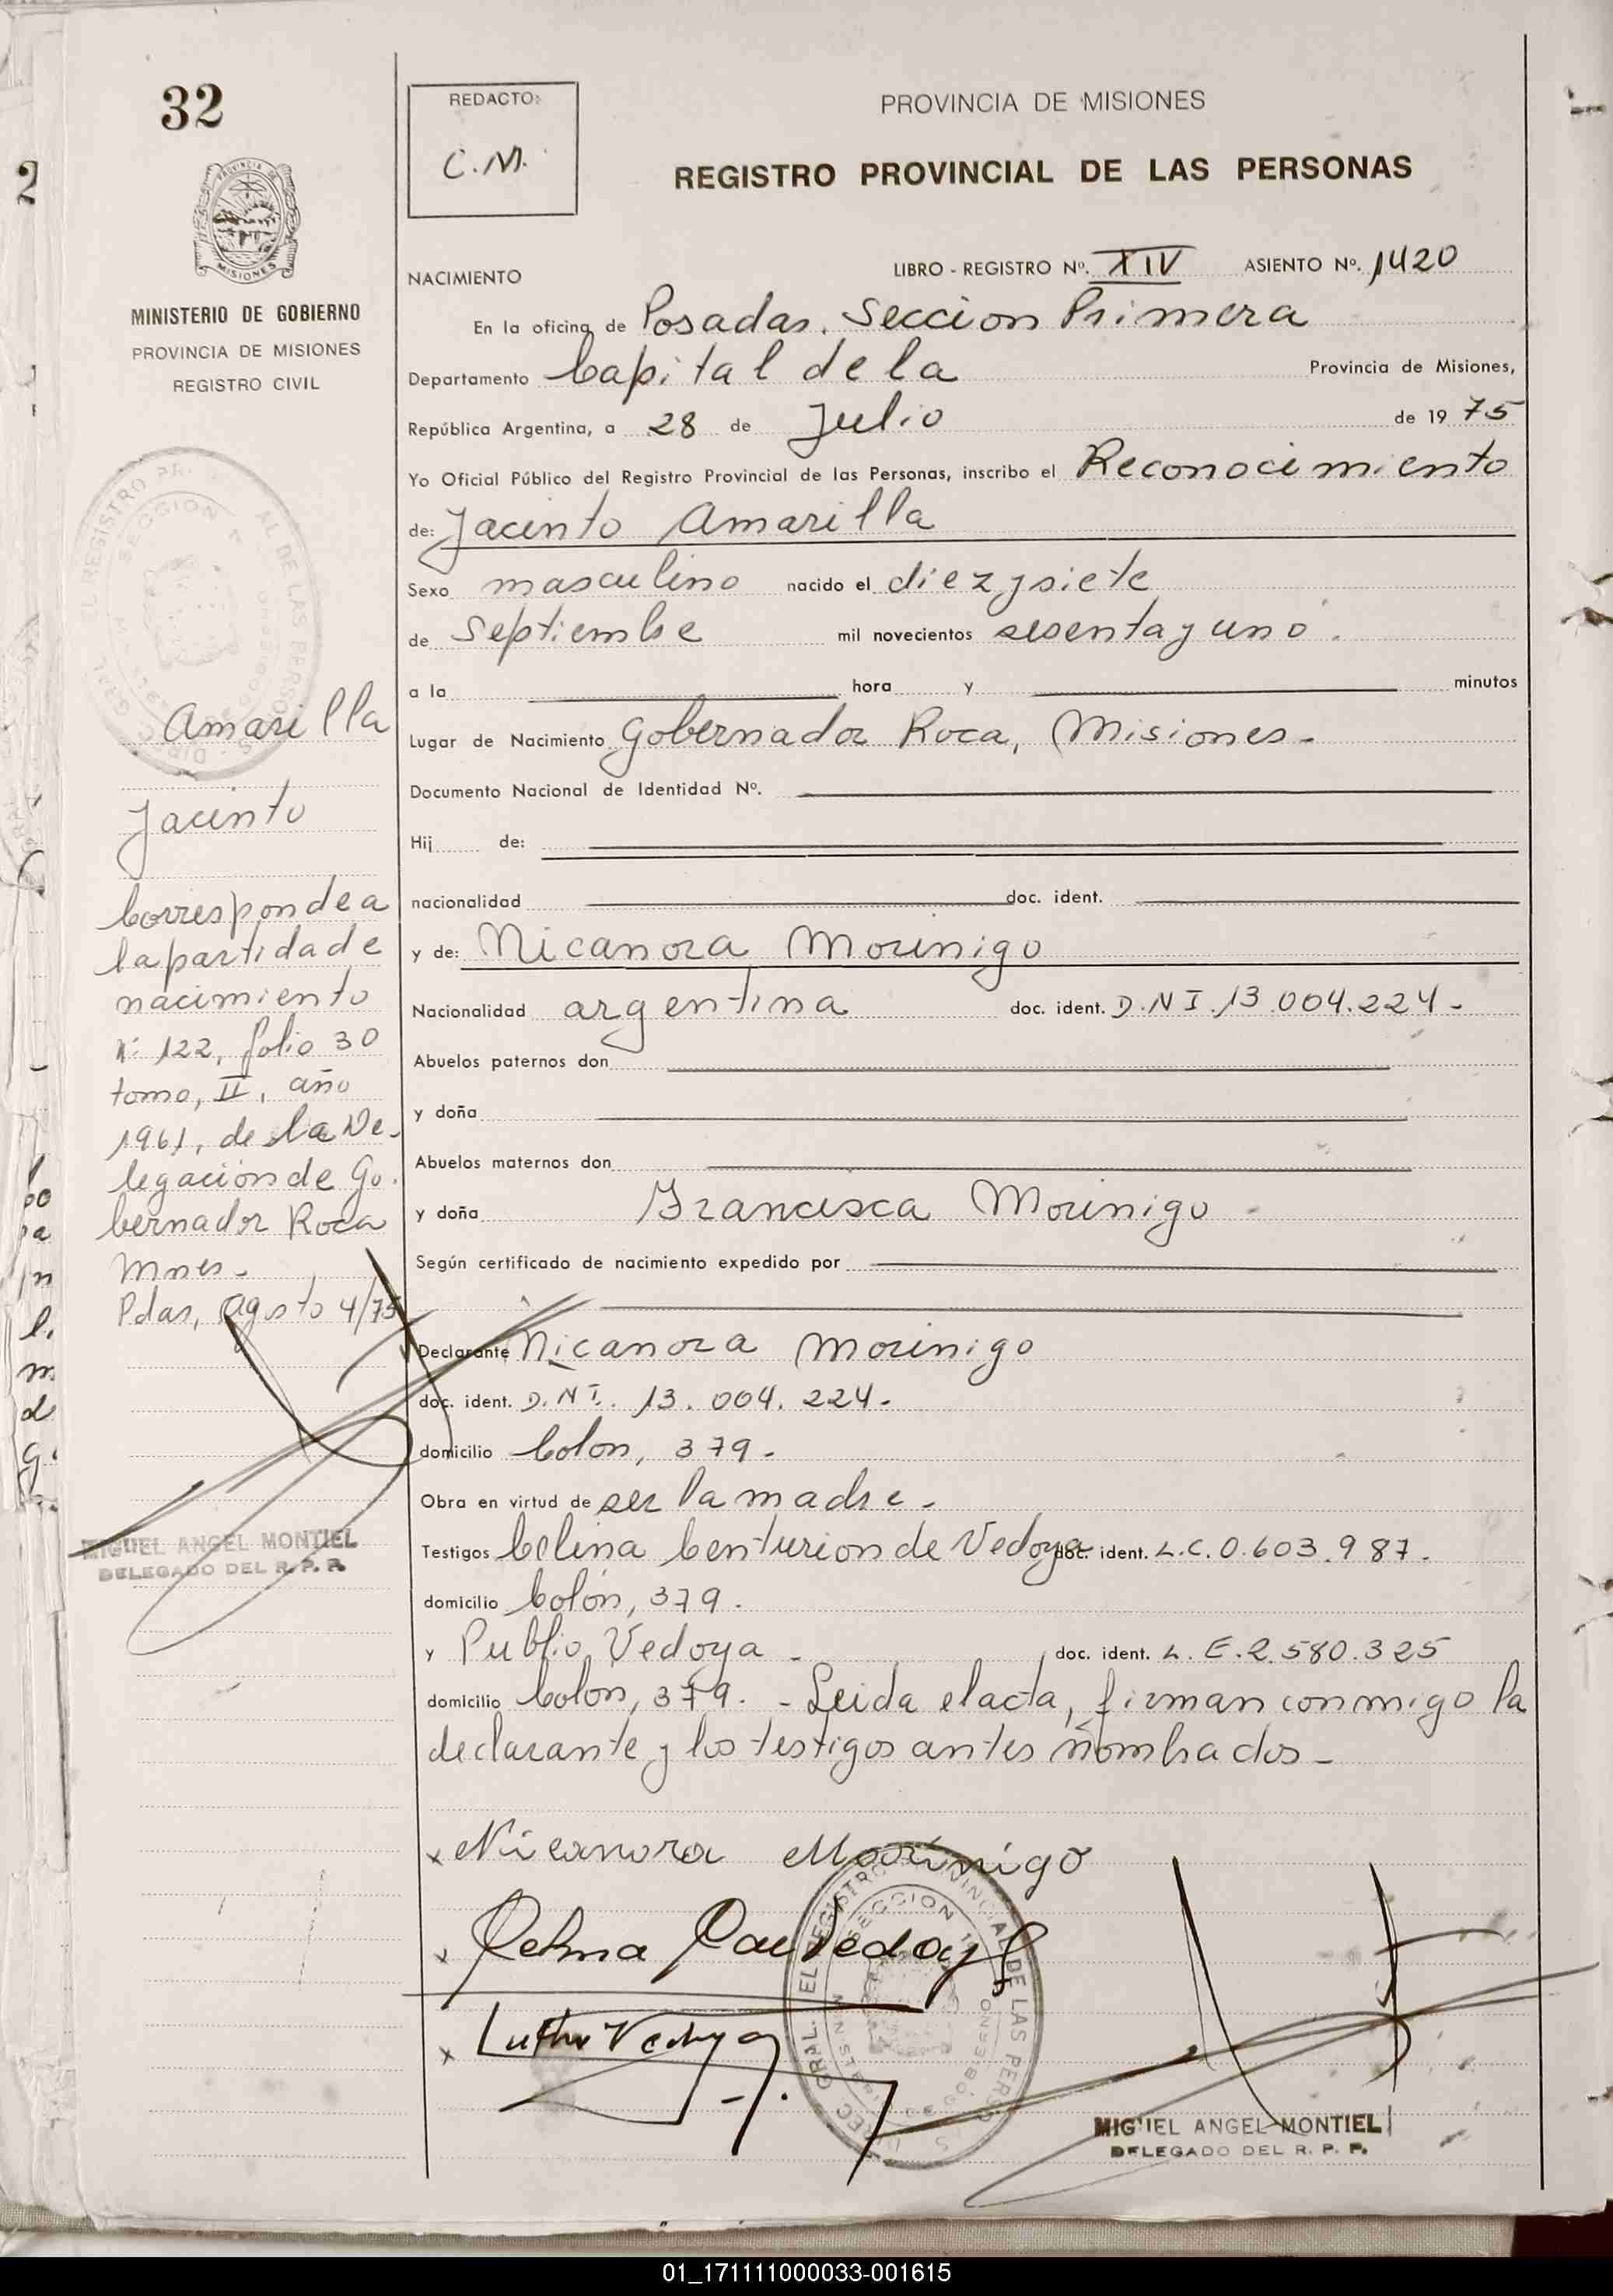 32
REDACTO:
C.M.
PROVINCIA DE MISIONES
REGISTRO PROVINCIAL DE LAS PERSONAS
MISIONES
MINISTERIO DE GOBIERNO
PROVINCIA DE MISIONES
REGISTRO CIVIL
NACIMIENTO
LIBRO - REGISTRO Nº. XIV ASIENTO Nº. 1420
En la oficina de Posadas. Seccion Primera
Departamento Capital de la Provincia de Misiones,
República Argentina, a 28 de Julio de 19 75
Yo Oficial Público del Registro Provincial de las Personas, inscribo el Reconocimiento
de: Jacinto Amarilla
Sexo masculino nacido el diez y siete
de Septiembre mil novecientos sesenta y uno.
a la hora y minutos
Lugar de Nacimiento Gobernador Roca, Misiones-
Documento Nacional de Identidad Nº.
Hij de:
nacionalidad doc. ident.
y de: Nicanora Morinigo
Nacionalidad argentina doc. ident. D.N I. 13.004.224-
Abuelos paternos don
y doña
Abuelos maternos don
y doña Francisca Morinigo -
Según certificado de nacimiento expedido por
Declarante Nicanora Morinigo
doc. ident. D.N I. 13.004.224-
domicilio Colon, 379-
Obra en virtud de ser la madre-
Testigos Celina Centurion de Vedoya doc. ident. L.C.0.603.987.
domicilio Colón, 379.
y Publio Vedoya - doc. ident. L.E.2.580.325
domicilio Colon, 379. - Leida el acta, firman conmigo la
declarante y los testigos antes nombrados-
Amarilla
Jacinto
Corresponde a
la partida de
nacimiento
Nº 122, folio 30
tomo, II, año
1961, de la De-
legación de Go-
bernador Roca
Mnes-
Pdas, Agosto 4/75
MIGUEL ANGEL MONTIEL
DELEGADO DEL R. P. P.
x Nicanora Morinigo
x
x Vedoya
MIGUEL ANGEL MONTIEL
DELEGADO DEL R. P. P.
01_171111000033-001615